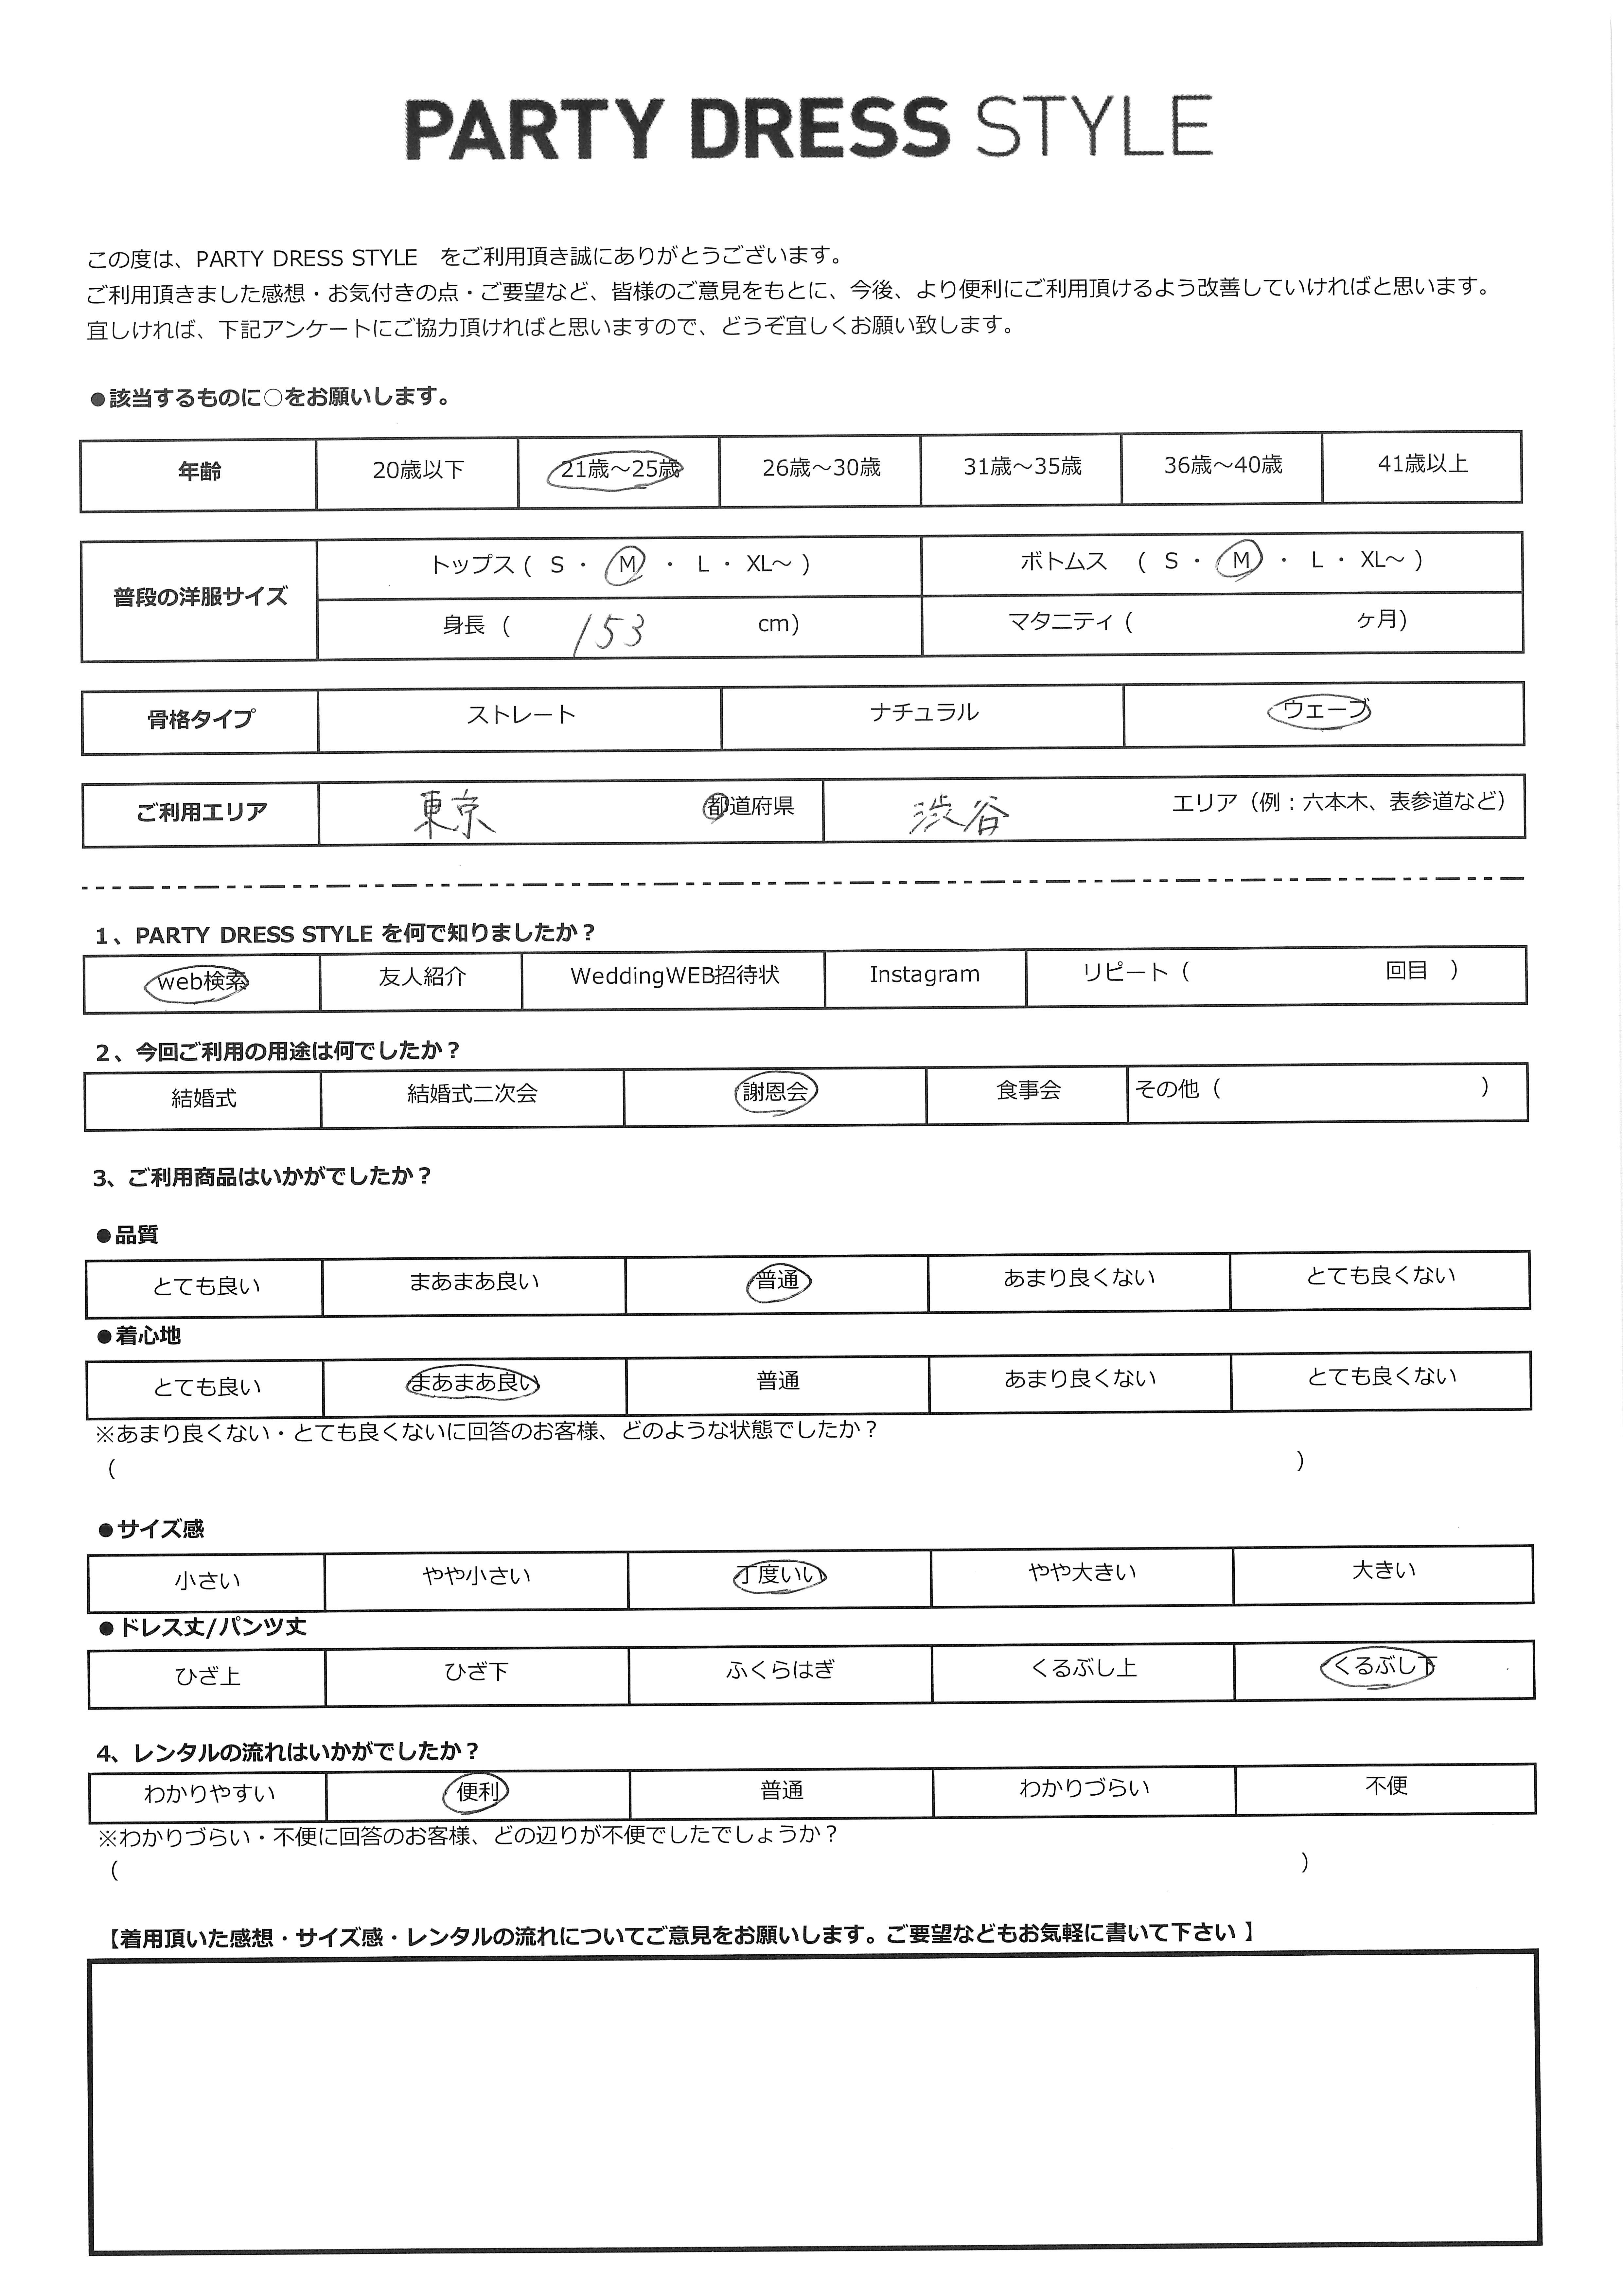 PARTY DRESS STYLE
この度は、PARTY DRESS STYLE をご利用頂き誠にありがとうございます。
ご利用頂きました感想・お気付きの点・ご要望など、皆様のご意見をもとに、今後、より便利にご利用頂けるよう改善していければと思います。
宜しければ、下記アンケートにご協力頂ければと思いますので、どうぞ宜しくお願い致します。
●該当するものに○をお願いします。
年齢 20歳以下 21歳～25歳 26歳～30歳 31歳～35歳 36歳～40歳 41歳以上
普段の洋服サイズ
トップス ( S ・ M ・ L ・ XL～ ) ボトムス ( S ・ M ・ L ・ XL～ )
身長 ( 153 cm) マタニティ ( ヶ月)
骨格タイプ ストレート ナチュラル ウェーブ
ご利用エリア 東京 都道府県 渋谷 エリア（例：六本木、表参道など）
1、PARTY DRESS STYLE を何で知りましたか？
web検索 友人紹介 WeddingWEB招待状 Instagram リピート（ 回目 ）
2、今回ご利用の用途は何でしたか？
結婚式 結婚式二次会 謝恩会 食事会 その他（ ）
3、ご利用商品はいかがでしたか？
●品質
とても良い まあまあ良い 普通 あまり良くない とても良くない
●着心地
とても良い まあまあ良い 普通 あまり良くない とても良くない
※あまり良くない・とても良くないに回答のお客様、どのような状態でしたか？
（ ）
●サイズ感
小さい やや小さい 丁度いい やや大きい 大きい
●ドレス丈/パンツ丈
ひざ上 ひざ下 ふくらはぎ くるぶし上 くるぶし下
4、レンタルの流れはいかがでしたか？
わかりやすい 便利 普通 わかりづらい 不便
※わかりづらい・不便に回答のお客様、どの辺りが不便でしたでしょうか？
（ ）
【着用頂いた感想・サイズ感・レンタルの流れについてご意見をお願いします。ご要望などもお気軽に書いて下さい 】